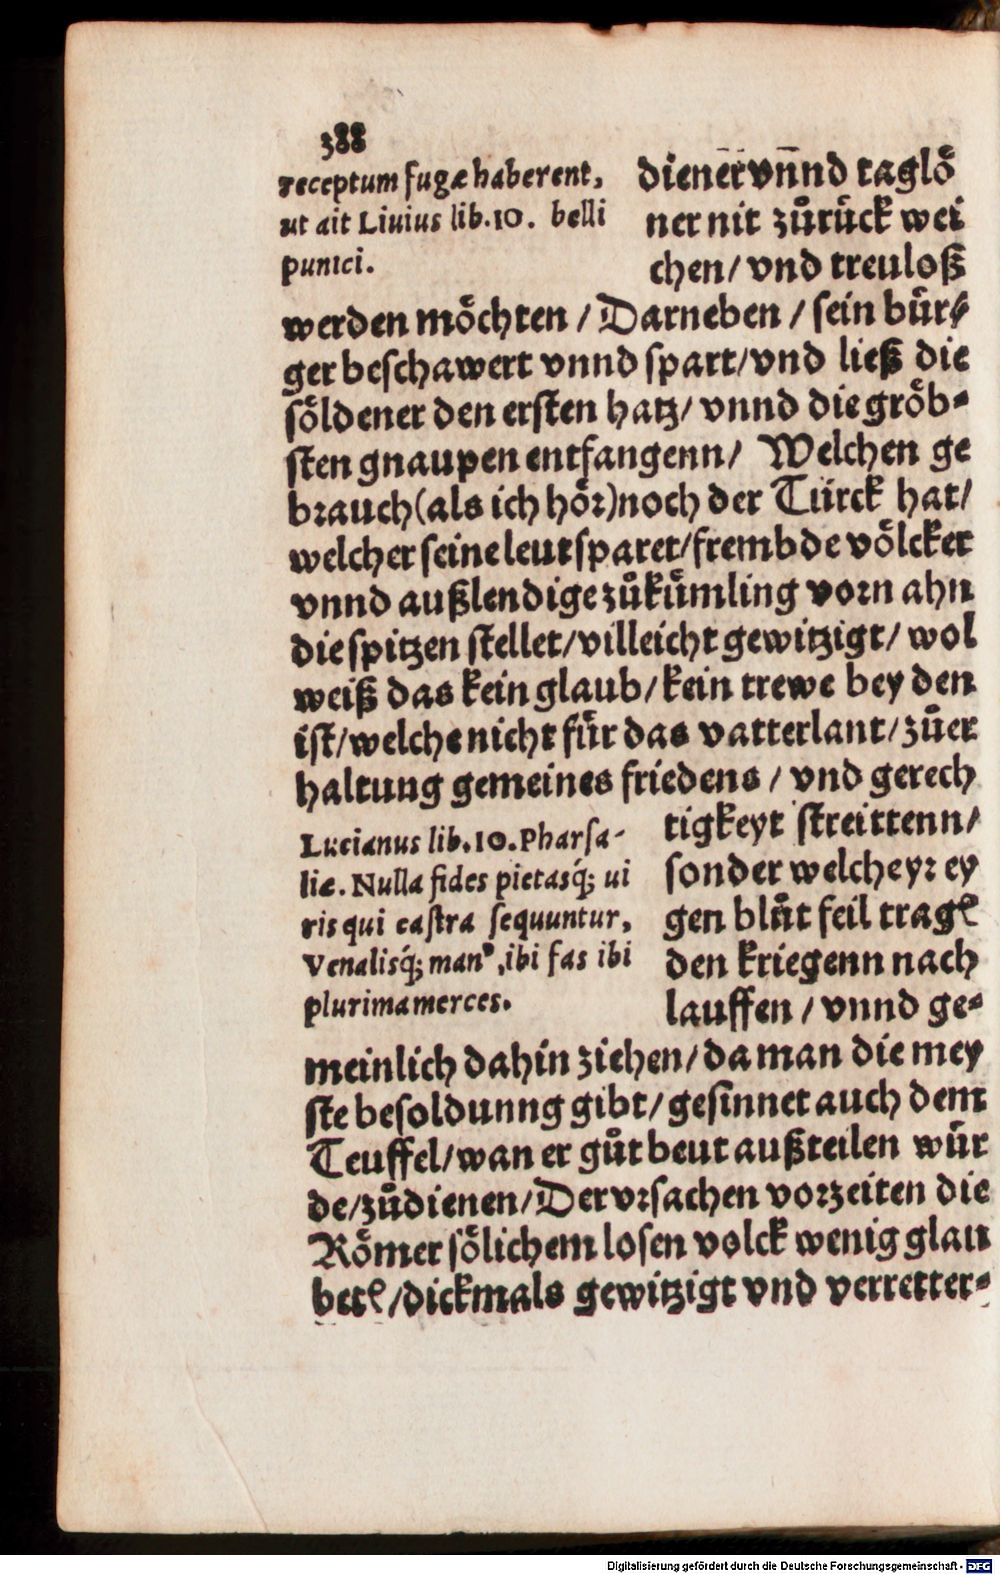 388
receptum fugæ haberent,
ut ait Liuius lib.10. belli
punici.
diener vnnd taglö
ner nit zůrück wei
chen/ vnd treuloß
werden möchten / Darneben / sein bür⸗
ger beschawert vnnd spart/vnd ließ die
söldener den ersten hatz/ vnnd die gröb⸗
sten gnaupen entfangenn/ Welchen ge
brauch(als ich hör)noch der Türck hat/
welcher seine leut sparet/frembde völcker
vnnd außlendige zůkümling vorn ahn
die spitzen stellet/villeicht gewitzigt/ wol
weiß das kein glaub/kein trewe bey den
ist/welche nicht für das vatterlant/zůer
haltung gemeines friedens / vnd gerech
Lucianus lib.10.Pharsa-
liæ. Nulla fides pietasq́; ui
ris qui castra sequuntur,
Venalisq́; manꝰ,ibi fas ibi
plurima merces.
tigkeyt streittenn/
sonder welche yr ey
gen blůt feil tragẽ
den kriegenn nach
lauffen / vnnd ge⸗
meinlich dahin ziehen/da man die mey
ste besoldunng gibt/gesinnet auch dem
Teuffel/wan er gůt beut außteilen wür
de/zůdienen/Der vrsachen vorzeiten die
Römer sölichem losen volck wenig glau
betẽ/dickmals gewitzigt vnd verretter⸗
Digitalisierung gefördert durch die Deutsche Forschungsgemeinschaft - DFG